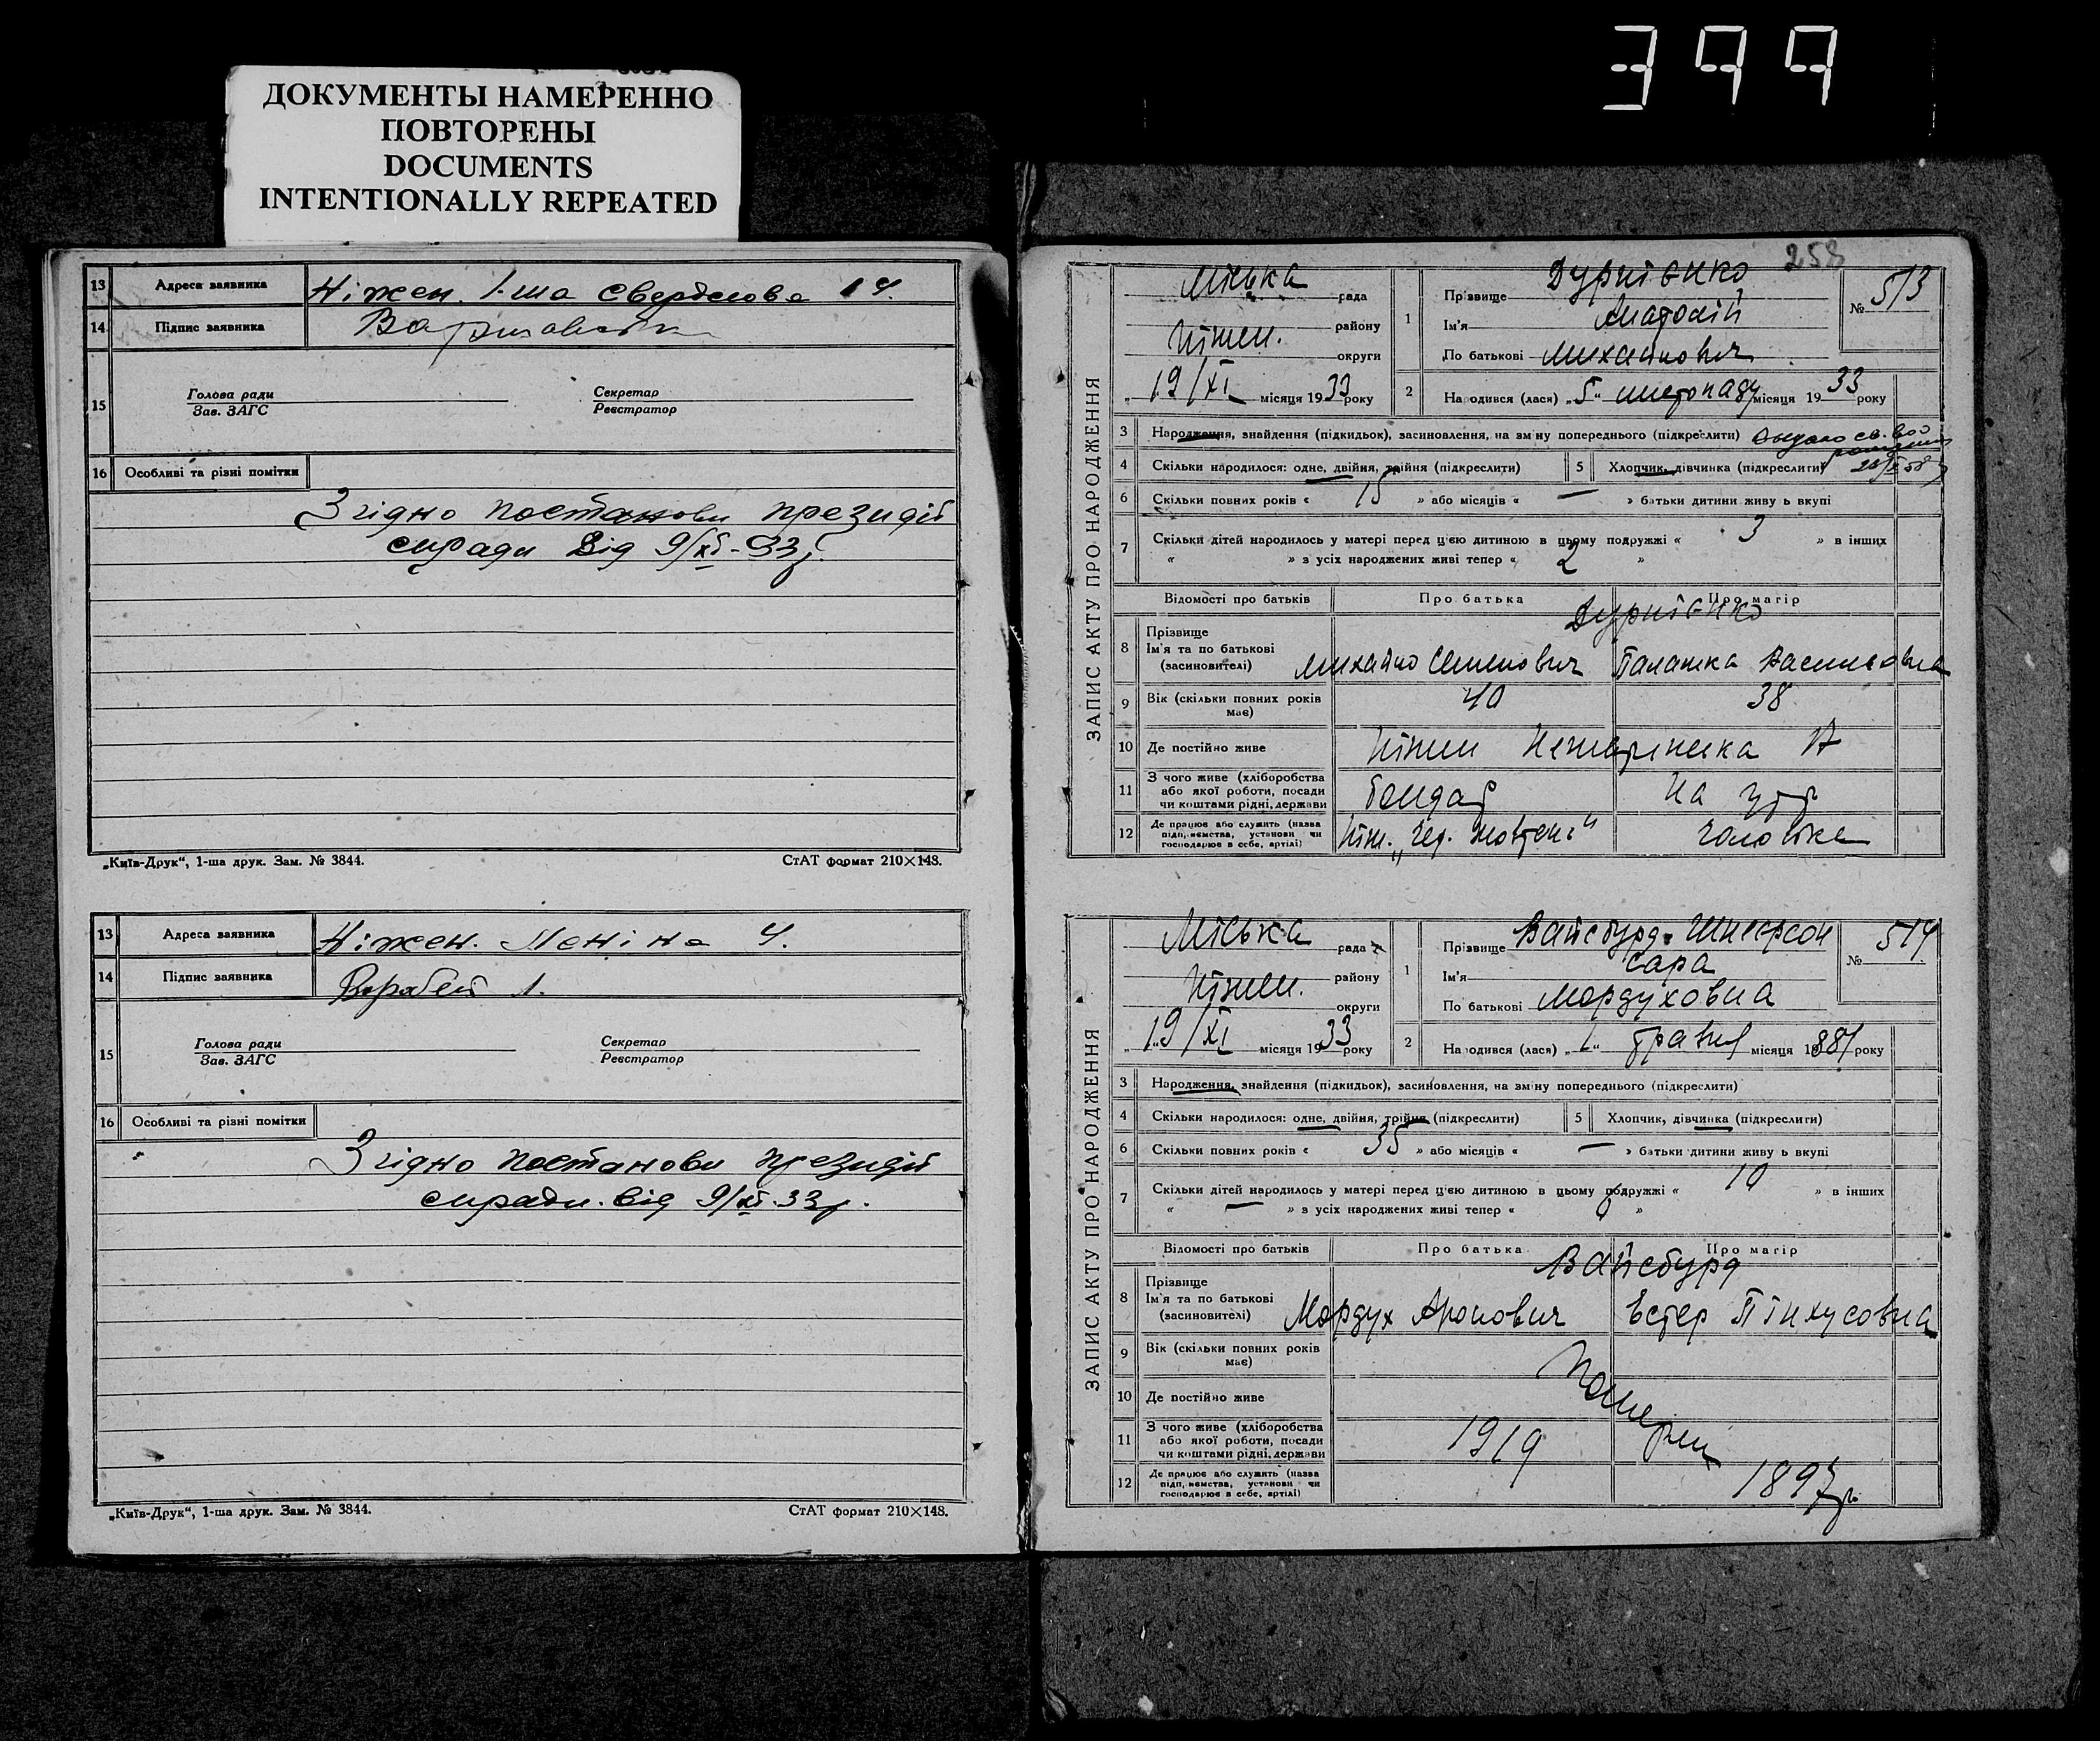 399
ДОКУМЕНТЫ НАМЕРЕННО
ПОВТОРЕНЫ
DOCUMENTS
INTENTIONALLY REPEATED
13 Адреса заявника Ніжен. 1-ша Свердлова 14.
14 Підпис заявника
15 Голова ради Секретар
Зав. ЗАГС Реєстратор
16 Особливі та різні помітки
Згідно постанови президії
від 9/XI-33р.
„Київ-Друк“, 1-ша друк. Зам. № 3844. СтАТ формат 210×148.
13 Адреса заявника Ніжен. Леніна 4.
14 Підпис заявника
15 Голова ради Секретар
Зав. ЗАГС Реєстратор
16 Особливі та різні помітки
Згідно постанови президії
від 9/XI-33р.
„Київ-Друк“, 1-ша друк. Зам. № 3844. СтАТ формат 210×148.
258
ЗАПИС АКТУ ПРО НАРОДЖЕННЯ
Міська рада
Ніжен. району
округи
„19/XI місяця 1933 року
1 Прізвище
Ім'я Анатолій
По батькові Михайлович
№ 513
2 Народився (лася) „5“ листопаду місяця 1933 року
3 Народження, знайдення (підкидьок), засиновлення, на зміну попереднього (підкреслити)
4 Скільки народилося: одне, двійня, трійня (підкреслити) 5 Хлопчик, дівчинка (підкреслити)
6 Скільки повних років « 15 » або місяців « — » батьки дитини живуть вкупі
7 Скільки дітей народилось у матері перед цією дитиною в цьому подружжі « 3 » в інших
« » з усіх народжених живі тепер « 2 »
Відомості про батьків Про батька Про матір
8 Прізвище
Ім'я та по батькові
(засиновителі) Михайло Семенович Палажка Васильовна
9 Вік (скільки повних років має) 40 38
10 Де постійно живе Ніжен
11 З чого живе (хліборобства
або якої роботи, посади
чи коштами рідні, держави Бондар На утр
12 Де працює або служить (назва
підприємства, установи чи
господарює в себе, артілі) Ніж. „Чер. Жовтень“ чоловіка
ЗАПИС АКТУ ПРО НАРОДЖЕННЯ
Міська рада
Ніжен. району
округи
„19/XI місяця 1933 року
1 Прізвище Вайсбурд-Шнеерсон
Ім'я Сара
По батькові Мордуховна
№ 514
2 Народився (лася) „1“ травня місяця 1881 року
3 Народження, знайдення (підкидьок), засиновлення, на зміну попереднього (підкреслити)
4 Скільки народилося: одне, двійня, трійня (підкреслити) 5 Хлопчик, дівчинка (підкреслити)
6 Скільки повних років « 35 » або місяців « — » батьки дитини живуть вкупі
7 Скільки дітей народилось у матері перед цією дитиною в цьому подружжі « 10 » в інших
« — » з усіх народжених живі тепер « 6 »
Відомості про батьків Про батька Про матір
Вайсбурд
8 Прізвище
Ім'я та по батькові
(засиновителі) Мордух Аронович Естер Пінхусовна
9 Вік (скільки повних років має)
10 Де постійно живе
Померли
11 З чого живе (хліборобства
або якої роботи, посади
чи коштами рідні, держави 1919
12 Де працює або служить (назва
підприємства, установи чи
господарює в себе, артілі) 1897р.